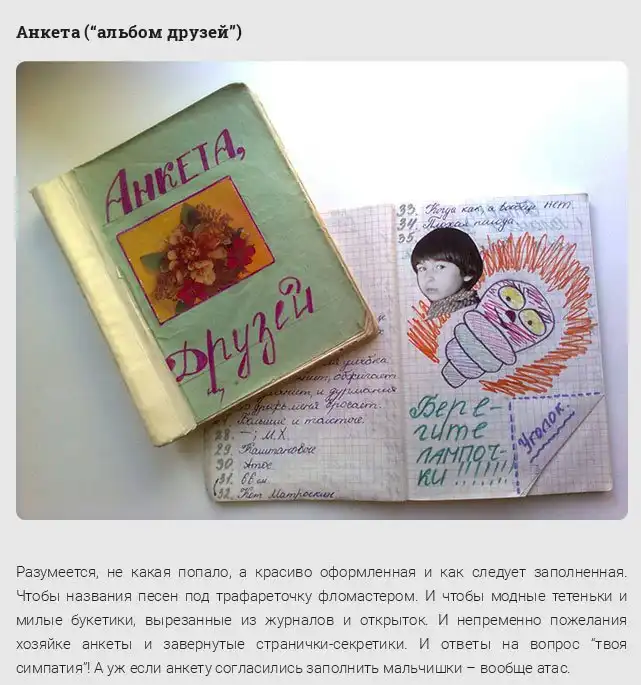 Анкета (“альбом друзей”)
Анкета,
Друзей
33. Когда как, а вообще нет.
34. Плохая погода.
35.
27. Большие и толстые.
28. — ; М.Х.
29. Каштановое
30. Атос
31. 66 см.
32. Кот Матроскин
Бере-
гите
лампоч-
ки !!!!!!!
Уголок:
Разумеется, не какая попало, а красиво оформленная и как следует заполненная.
Чтобы названия песен под трафареточку фломастером. И чтобы модные тетеньки и
милые букетики, вырезанные из журналов и открыток. И непременно пожелания
хозяйке анкеты и завернутые странички-секретики. И ответы на вопрос “твоя
симпатия”! А уж если анкету согласились заполнить мальчишки – вообще атас.